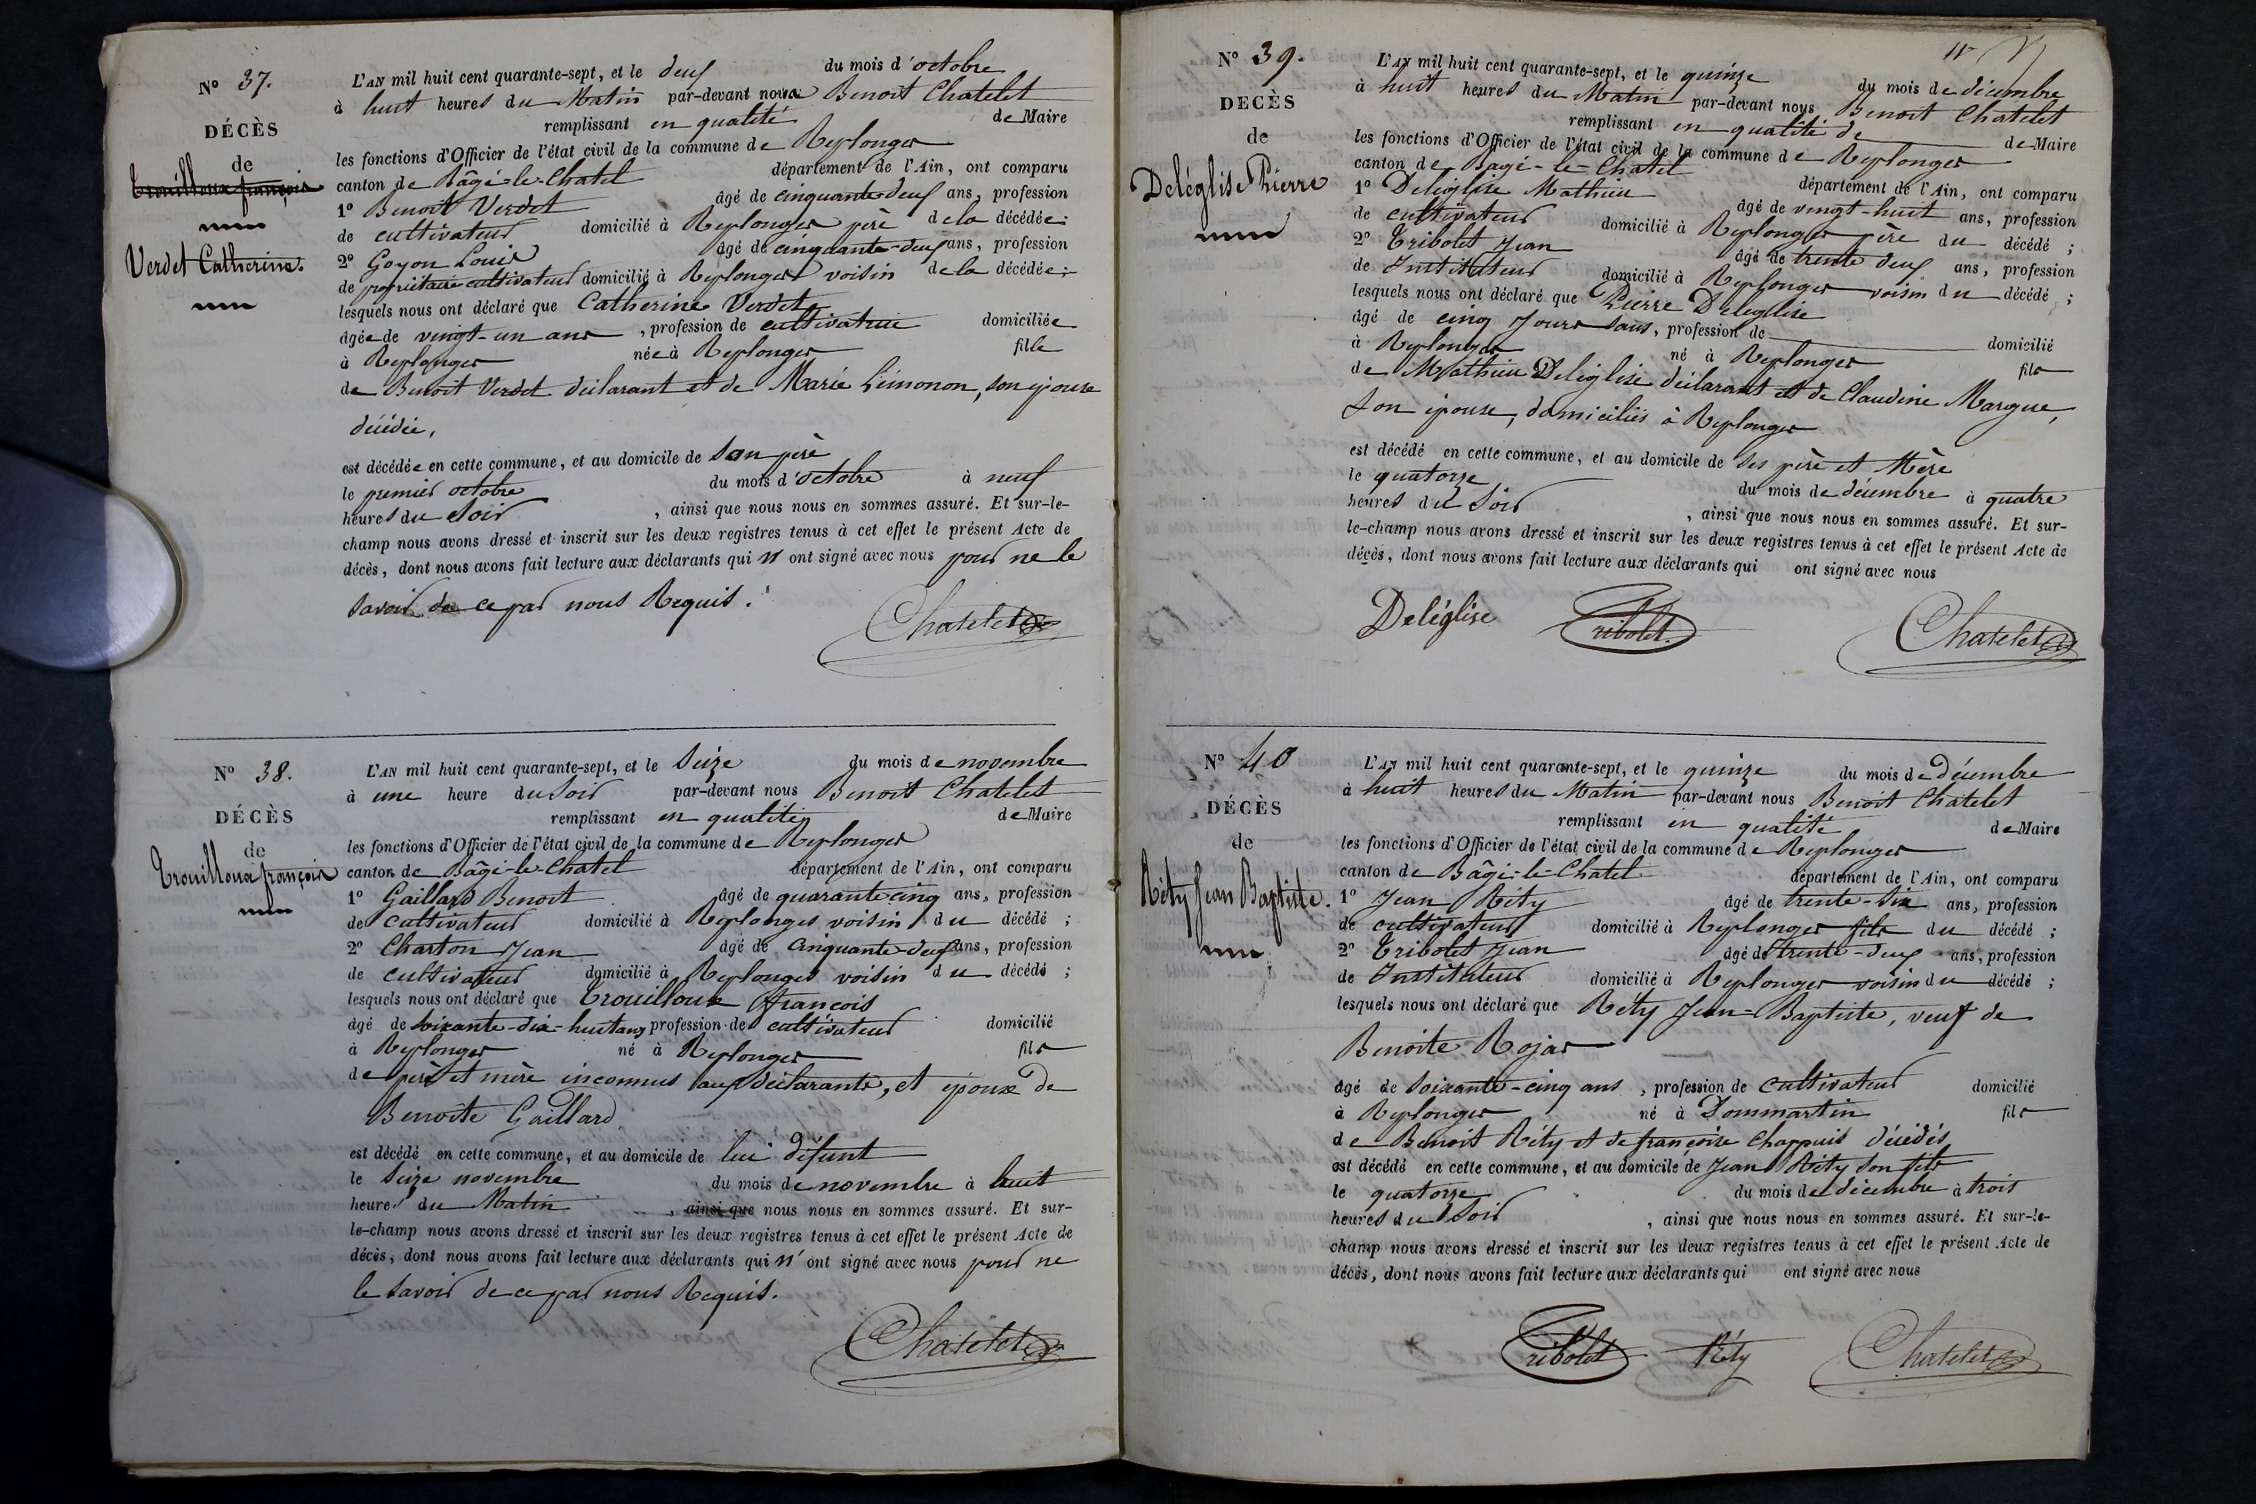 N° 37.
DÉCÈS
de
Trouilloux françois
Verdet Catherine.
L'AN mil huit cent quarante-sept, et le deux du mois d'octobre
à huit heures du Matin par-devant nous Benoit Chatelet
remplissant en qualité de Maire
les fonctions d'Officier de l'état civil de la commune de Replonges
canton de Bâgé-le-Chatel département de l'Ain, ont comparu
1° Benoit Verdet âgé de cinquante-deux ans, profession
de cultivateur domicilié à Replonges père de la décédée;
2° Goyon Louis âgé de cinquante-deux ans, profession
de propriétaire cultivateur domicilié à Replonges voisin de la décédée;
lesquels nous ont déclaré que Catherine Verdet
âgée de vingt-un ans, profession de cultivatrice domiciliée
à Replonges née à Replonges fille
de Benoit Verdet déclarant et de Marie Limonon, son épouse
décédée,
est décédée en cette commune, et au domicile de son père
le premier octobre du mois d'octobre à neuf
heures du Soir, ainsi que nous nous en sommes assuré. Et sur-le-
champ nous avons dressé et inscrit sur les deux registres tenus à cet effet le présent Acte de
décès, dont nous avons fait lecture aux déclarants qui n'ont signé avec nous pour ne le
savoir de ce par nous Requis.
Chatelet
N° 38.
DÉCÈS
de
Trouilloux françois
L'AN mil huit cent quarante-sept, et le Seize du mois de novembre
à une heure du Soir par-devant nous Benoit Chatelet
remplissant en qualité de Maire
les fonctions d'Officier de l'état civil de la commune de Replonges
canton de Bâgé-le-Chatel département de l'Ain, ont comparu
1° Gaillard Benoit âgé de quarante-cinq ans, profession
de cultivateur domicilié à Replonges voisin du décédé;
2° Charton Jean âgé de Cinquante-deux ans, profession
de cultivateur domicilié à Replonges voisin du décédé;
lesquels nous ont déclaré que Trouilloux françois
âgé de soixante-dix-huit ans profession de cultivateur domicilié
à Replonges né à Replonges fils
de père et mère inconnus aux déclarants, et époux de
Benoite Gaillard
est décédé en cette commune, et au domicile de lui défunt
le Seize novembre du mois de novembre à huit
heures du Matin, ainsi que nous nous en sommes assuré. Et sur-
le-champ nous avons dressé et inscrit sur les deux registres tenus à cet effet le présent Acte de
décès, dont nous avons fait lecture aux déclarants qui n'ont signé avec nous pour ne
le savoir de ce par nous Requis.
Chatelet
N° 39.
DÉCÈS
de
Deléglise Pierre
L'AN mil huit cent quarante-sept, et le quinze du mois de décembre
à huit heures du Matin par-devant nous Benoit Chatelet
remplissant en qualité de de Maire
les fonctions d'Officier de l'état civil de la commune de Replonges
canton de Bagé-le-Chatel département de l'Ain, ont comparu
1° Deléglise Mathieu âgé de vingt-huit ans, profession
de cultivateur domicilié à Replonges père du décédé;
2° Tribolet Jean âgé de trente deux ans, profession
de Instituteur domicilié à Replonges voisin du décédé;
lesquels nous ont déclaré que Pierre Deléglise
âgé de cinq jours sans, profession de domicilié
à Replonges né à Replonges fils
de Mathieu Deléglise déclarant et de Claudine Margue,
son épouse, domiciliés à Replonges
est décédé en cette commune, et au domicile de ses père et Mère
le quatorze du mois de décembre à quatre
heures du Soir, ainsi que nous nous en sommes assuré. Et sur-
le-champ nous avons dressé et inscrit sur les deux registres tenus à cet effet le présent Acte de
décès, dont nous avons fait lecture aux déclarants qui ont signé avec nous
Deléglise Tribolet Chatelet
N° 40
DÉCÈS
de
Réty Jean Baptiste.
L'AN mil huit cent quarante-sept, et le quinze du mois de Décembre
à huit heures du Matin par-devant nous Benoit Chatelet
remplissant en qualité de Maire
les fonctions d'Officier de l'état civil de la commune de Replonges
canton de Bâgé-le-Chatel département de l'Ain, ont comparu
1° Jean Réty âgé de trente-six ans, profession
de cultivateur domicilié à Replonges fils du décédé;
2° Tribolet Jean âgé de trente-deux ans, profession
de Instituteur domicilié à Replonges voisin du décédé;
lesquels nous ont déclaré que Réty Jean-Baptiste, veuf de
Benoite Rojas
âgé de soixante-cinq ans, profession de cultivateur domicilié
à Replonges né à Dommartin fils
de Benoit Réty et de françoise Chappuis Décédés
est décédé en cette commune, et au domicile de Jean Réty son fils
le quatorze du mois de décembre à trois
heures du Soir, ainsi que nous nous en sommes assuré. Et sur-le-
champ nous avons dressé et inscrit sur les deux registres tenus à cet effet le présent Acte de
décès, dont nous avons fait lecture aux déclarants qui ont signé avec nous
Tribolet Réty Chatelet